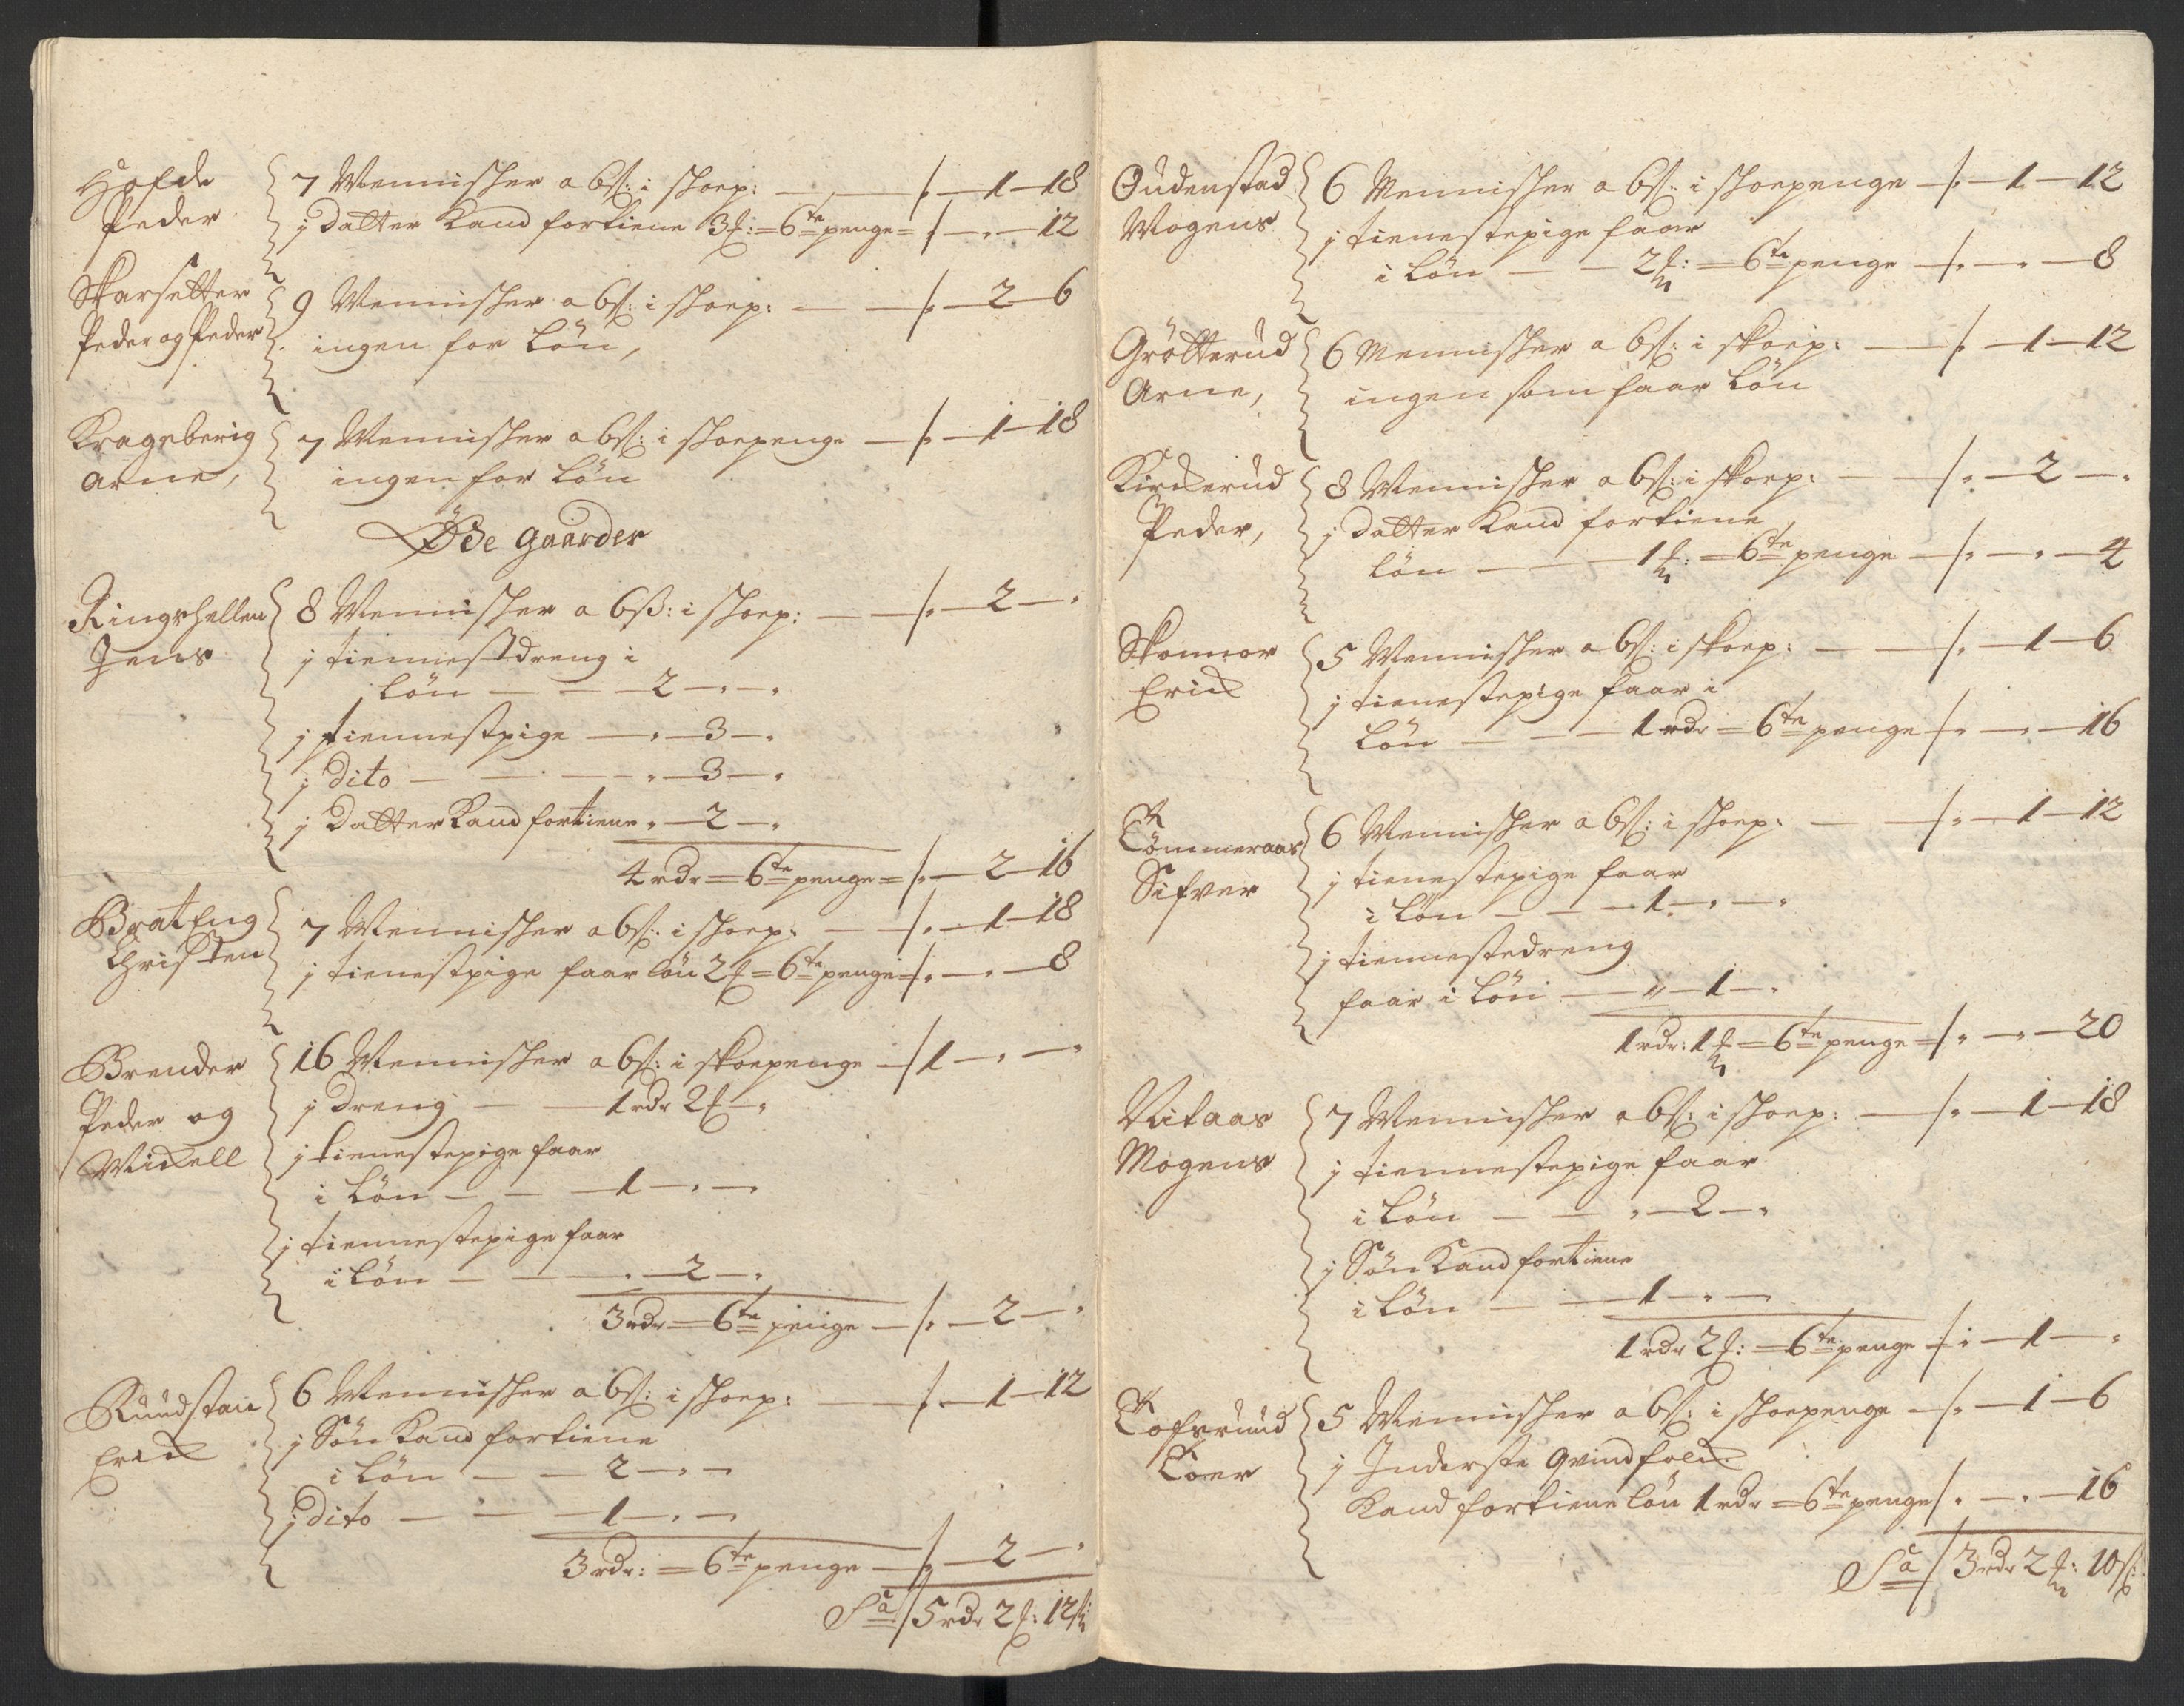 Hofde
Peder
7 Mennisher a 6ß: i shoep: — — /. — 1 — 18
j datter Kand fortiene 3ƒ: = 6te penge = /. — . — 12
Skarsetter
Peder og Peder
9 Mennisher a 6ß: i shoep: — — /. — 2 — 6
ingen for Løn,
Krageberig
Arne,
7 Mennisher a 6ß: i shoepenge — /. — 1 — 18
ingen for Løn
Øde gaarder
Ringshellen
Jens
8 Mennisher a 6ß: i shoep: — — /. — 2 — .
j tiennestdreng i
løn — — 2 — . — .
j tiennestpige — . — 3 — .
j dito — — — . — 3 — .
j Datter Kand fortiene . — 2 — .
4 rdr = 6te penge = /. — 2 — 16
BratEng
Christen
7 Mennisher a 6ß: i shoep: — — /. — 1 — 18
j tienestpige faar løn 2ƒ = 6te penge = /. — . — 8
Brender
Peder og
Mickell
16 Mennisher a 6ß: i skoepenge — / 1 — . — .
j dreng — — 1 rdr 2ƒ — .
j tienestepige faar
i Løn — — 1 — . — .
j tiennestepige faar
i Løn — — . — 2 — .
3 rdr = 6te penge — /. — 2 — .
Ruudstain
Erick
6 Mennisher a 6ß: i shoep: — /. — 1 — 12
j Søn Kand fortiene
i Løn — — 2 — . — .
j dito — — 1 — . — .
3 rdr: = 6te penge — /. — 2 — .
Sa / 5 rdr 2ƒ: 12ß
Oudenstad
Mogens
6 Mennisher a 6ß: i shoepenge — /. — 1 — 12
j tienestepige faar
i Løn — — 2ƒ: = 6te penge — /. — . — 8
Grøtterud
Arne,
6 Mennisher a 6ß: i skoep: — — /. — 1 — 12
ingen som faar Løn
Kirckerud
Peder,
8 Mennisher a 6ß: i skoep: — — /. — 2 — .
j datter Kand fortiene
Løn — — 1ƒ: = 6te penge — /. — . — 4
Skonnor
Erick
5 Mennisher a 6ß: i skoep: — — /. — 1 — 6
j tienestepige faar i
Løn — — — 1 rdr = 6te penge /. — . — 16
Tømmeraas
Sifver
6 Mennisher a 6ß: i shoep: — — /. — 1 — 12
j tienestepige faar
i Løn — — — 1 — . — .
j tiennestedreng
faar i Løn — „ — 1 — .
1 rdr: 1ƒ = 6te penge = /. — . — 20
Vitaas
Mogens
7 Mennisher a 6ß: i shoep: — /. — 1 — 18
j tiennestepige faar
i Løn — — . — 2 — .
j Søn Kand fortiene
i Løn — — 1 — . — .
1 rdr 2ƒ: = 6te penge — /. — 1 — .
Tofsruud
Toer
5 Mennisher a 6ß: i shoepenge — /. — 1 — 6
j Inderste qvindfolck
Kand fortiene løn 1 rdr = 6te penge /. — . — 16
Sa / 3 rdr 2ƒ: 10ß: